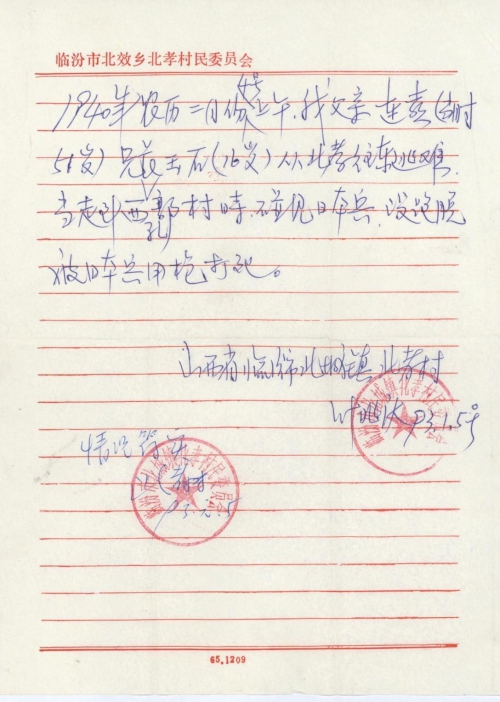 临汾市北效乡北孝村民委员会
4号
1940年农历二月份上午，我父亲连喜（当时
51岁）兄義玉石（16岁）从北孝往東逃难，
当走到西郭村時，碰见日本兵，没逃脱
孔
被日本兵用枪打死。
山西省临汾北城镇北孝村
93.1.5号
情况符实
北孝村
93.元.5
65.1209